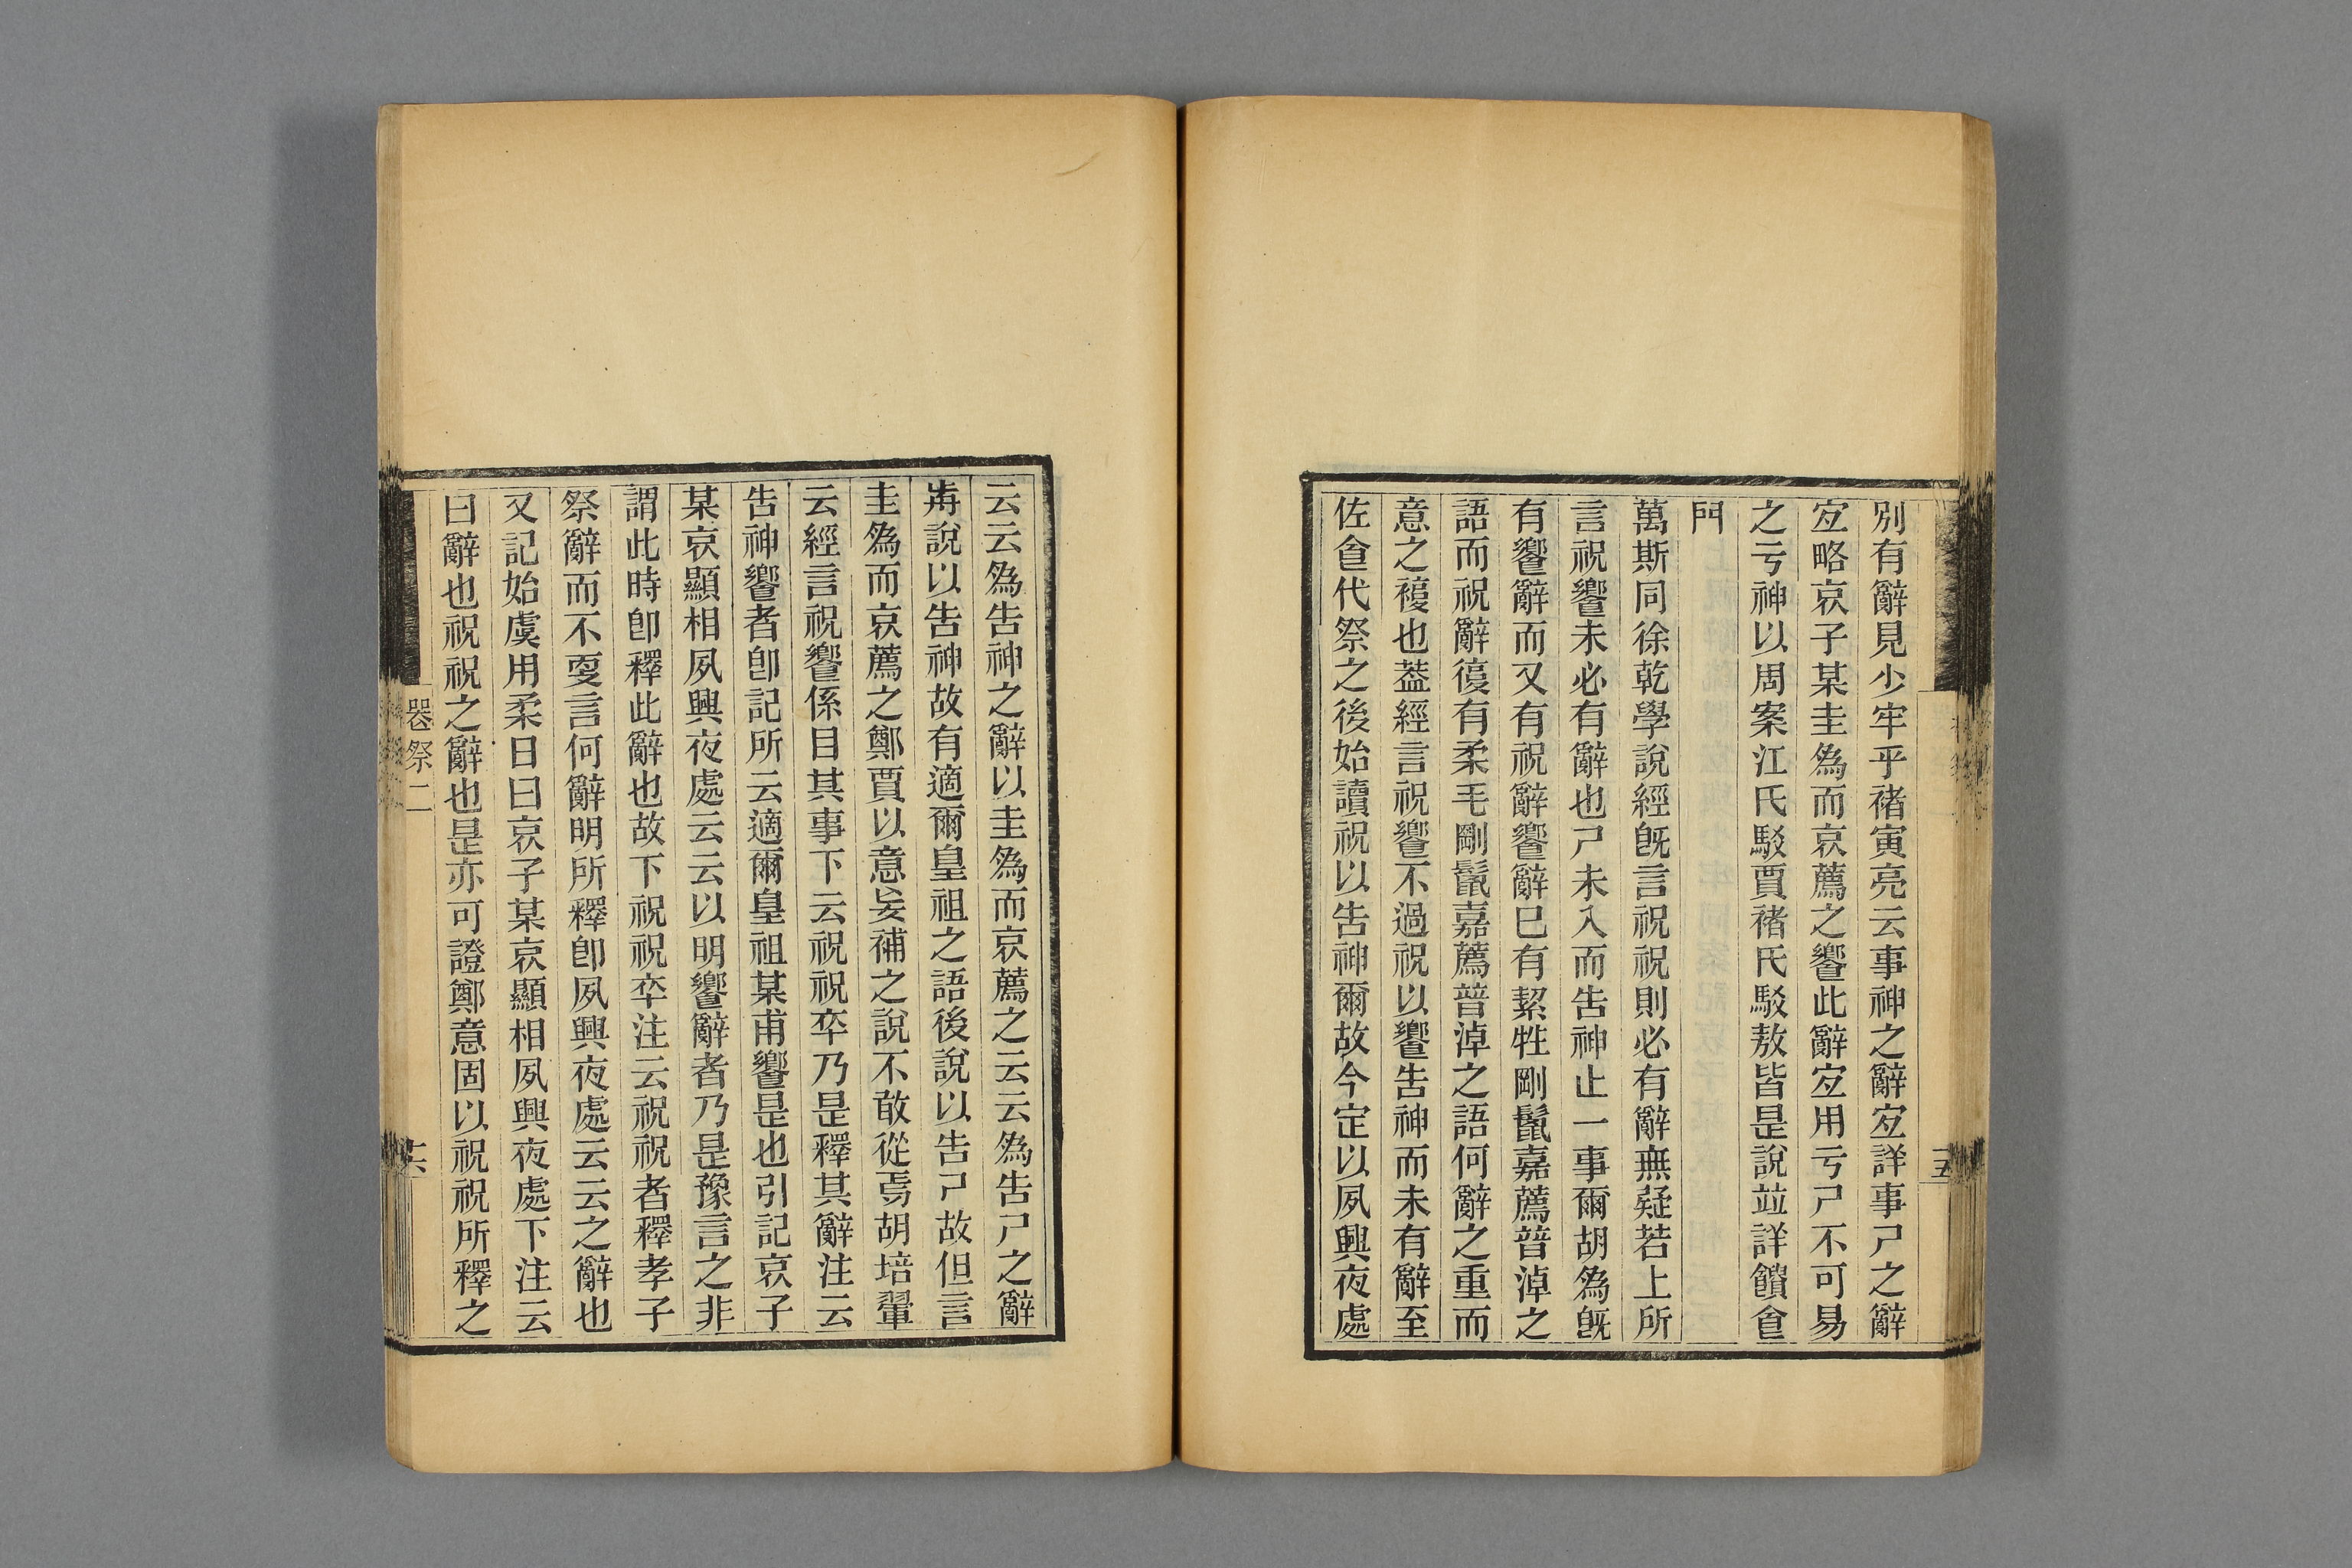 別有辭見少牢乎禇寅亮云事神之辭宐詳事尸之辭
宐略哀子某圭為而哀薦之饗此辭宐用亏尸不可易
之亏神以周案江氏駁賈禇氏駁敖皆是說竝詳饋𠊊
門
萬斯同徐乾學說經旣言祝祝則必有辭無疑若上所
言祝饗未必有辭也尸未入而告神止一事爾胡為旣
有饗辭而又有祝辭饗辭巳有絜牲剛鬣嘉薦普淖之
語而祝辭復有柔毛剛鬣嘉薦普淖之語何辭之重而
意之複也葢經言祝饗不過祝以饗告神而未有辭至
佐𠊊代祭之後始讀祝以告神爾故今定以夙興夜處
云云為告神之辭以圭為而哀薦之云云為告尸之辭
歬說以告神故有適爾皇祖之語後說以告尸故但言
圭為而哀薦之鄭賈以意妄補之說不敢從焉胡培翬
云經言祝饗係目其事下云祝祝卒乃是釋其辭注云
告神饗者卽記所云適爾皇祖某甫饗是也引記哀子
某哀顯相夙興夜處云云以明饗辭者乃是豫言之非
謂此時卽釋此辭也故下祝祝卒注云祝祝者釋孝子
祭辭而不耎言何辭明所釋卽夙興夜處云云之辭也
又記始虞用柔日曰哀子某哀顯相夙興夜處下注云
曰辭也祝祝之辭也是亦可證鄭意固以祝祝所釋之
喪祭二
十六